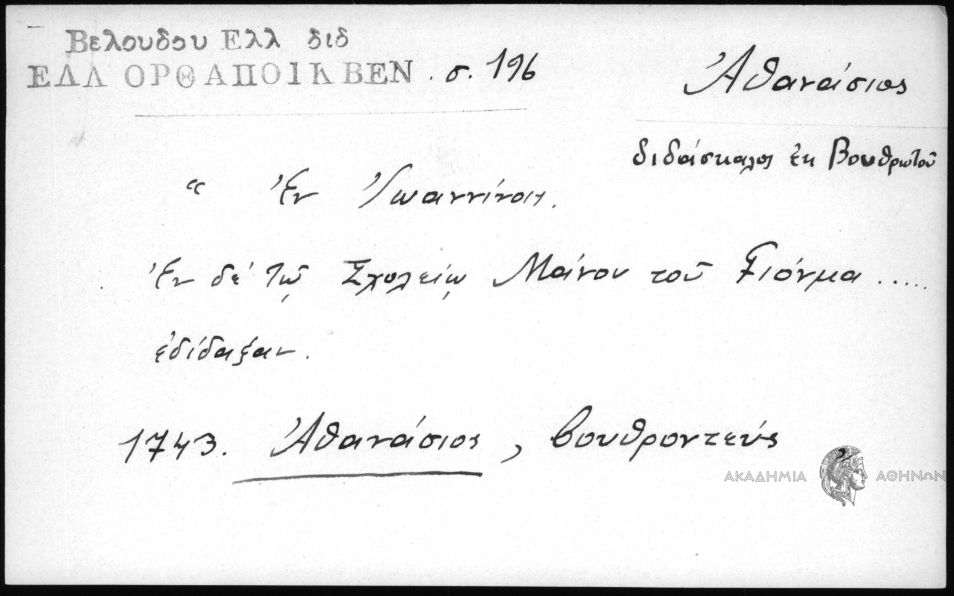 Βελουδου Ελλ διδ
ΕΛΛ ΟΡΘ ΑΠΟΙΚ ΒΕΝ . σ. 196
Ἀθανάσιος
διδάσκαλος ἐκ Βουθρωτοῦ
“ Ἐν Ἰωαννίνοις.
Ἐν δὲ τῷ Σχολείῳ Μάνου τοῦ Γιόνμα .....
ἐδίδαξαν.
1743. Ἀθανάσιος, βουθροντεύς
ΑΚΑΔΗΜΙΑ ΑΘΗΝΩΝ